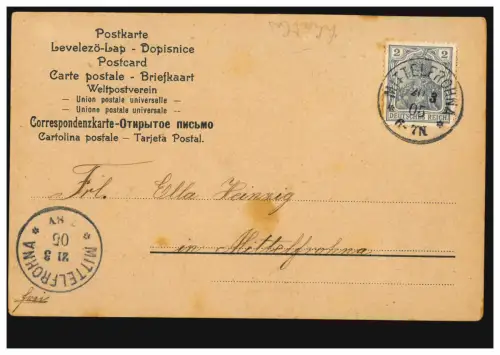 Postkarte
Levelezö-Lap - Dopisnice
Postcard
Carte postale - Briefkaart
Weltpostverein
— Union postale universelle —
— Unione postale universale —
Correspondenzkarte-Открытое письмо
Cartolina postale — Tarjeta Postal.
2 2
DEUTSCHES REICH
MITTELFROHNA
3
05
6-7N.
Frl. Ella Heinzig
in Mittelfrohna
MITTELFROHNA
21 3
05
7-8V
frei